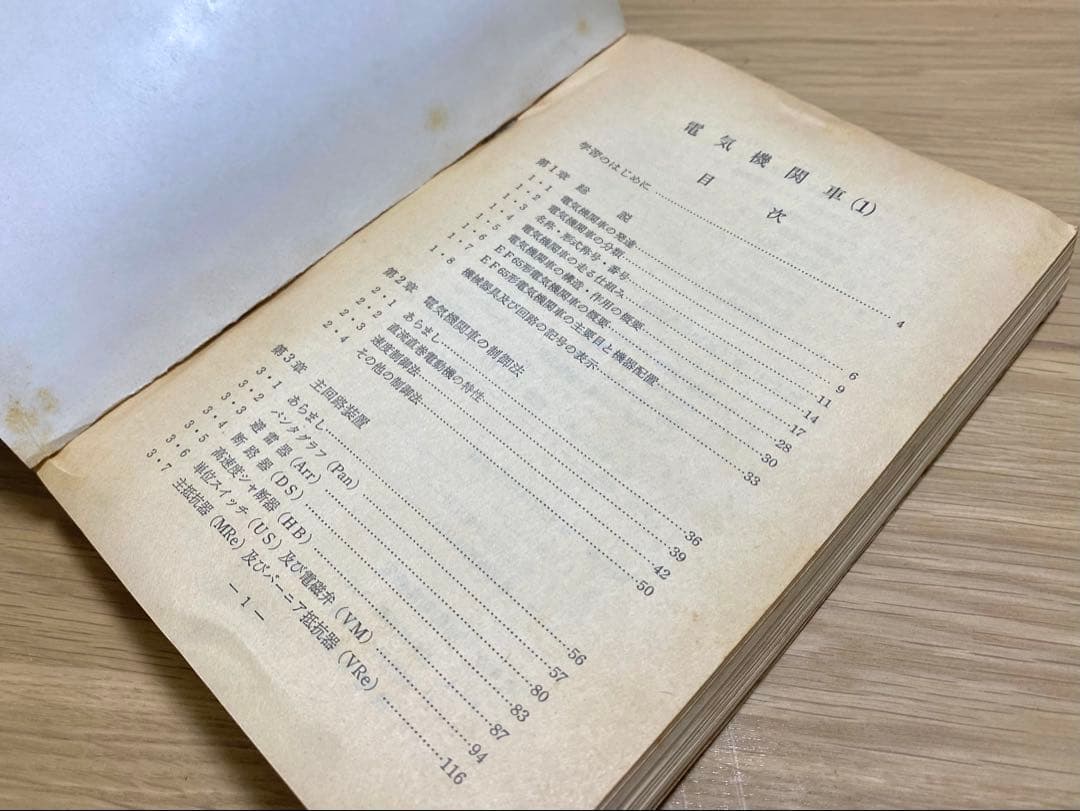 電気機関車(1)
目次
学習のはじめに……4
第1章 総説
1・1 電気機関車の発達……6
1・2 電気機関車の分類……9
1・3 名称・形式称号・番号……11
1・4 電気機関車の走る仕組み……14
1・5 電気機関車の構造・作用の概要……17
1・6 EF65形電気機関車の概要……28
1・7 EF65形電気機関車の主要目と機器配置……30
1・8 機械器具及び回路の記号の表示……33
第2章 電気機関車の制御法
2・1 あらまし……36
2・2 直流直巻電動機の特性……39
2・3 速度制御法……42
2・4 その他の制御法……50
第3章 主回路装置
3・1 あらまし……56
3・2 パンタグラフ(Pan)……57
3・3 避雷器(Arr)……80
3・4 断路器(DS)……83
3・5 高速度シャ断器(HB)……87
3・6 単位スイッチ(US)及び電磁弁(VM)……94
3・7 主抵抗器(MRe)及びバーニア抵抗器(VRe)……116
—1—